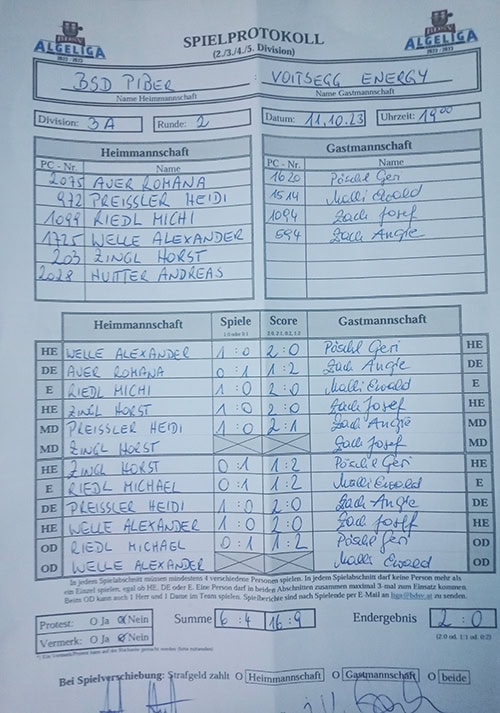 ALGELIGA
2022 / 2023
SPIELPROTOKOLL
(2./3./4./5. Division)
ALGELIGA
2022 / 2023
BSD PIBER : VOITSEGG ENERGY
Name Heimmannschaft Name Gastmannschaft
Division: 3A Runde: 2 Datum: 11.10.23 Uhrzeit: 19 00
Heimmannschaft Gastmannschaft
PC - Nr. Name PC - Nr. Name
2075 AUER ROMANA 1620 Pöschl Geri
972 PREISSLER HEIDI 1514 Malli Ewald
1099 RIEDL MICHI 1094 Zach Josef
1725 WELLE ALEXANDER 594 Zach Angie
203 ZINGL HORST
2028 HUTTER ANDREAS
Heimmannschaft Spiele Score Gastmannschaft
1:0 oder 0:1 2:0, 2:1, 0:2, 1:2
HE WELLE ALEXANDER 1 : 0 2 : 0 Pöschl Geri HE
DE AUER ROMANA 0 : 1 1 : 2 Zach Angie DE
E RIEDL MICHI 1 : 0 2 : 0 Malli Ewald E
HE ZINGL HORST 1 : 0 2 : 0 Zach Josef HE
MD PREISSLER HEIDI 1 : 0 2 : 1 Zach Angie MD
MD ZINGL HORST Zach Josef MD
HE ZINGL HORST 0 : 1 1 : 2 Pöschl Geri HE
E RIEDL MICHAEL 0 : 1 1 : 2 Malli Ewald E
DE PREISSLER HEIDI 1 : 0 2 : 0 Zach Angie DE
HE WELLE ALEXANDER 1 : 0 2 : 0 Zach Josef HE
OD RIEDL MICHAEL 0 : 1 1 : 2 Pöschl Geri OD
OD WELLE ALEXANDER Malli Ewald OD
In jedem Spielabschnitt müssen mindestens 4 verschiedene Personen spielen. In jedem Spielabschnitt darf keine Person mehr als
ein Einzel spielen, egal ob HE, DE oder E. Eine Person darf in beiden Abschnitten zusammen maximal 3-mal zum Einsatz kommen.
Beim OD kann auch 1 Herr und 1 Dame im Team spielen. Spielberichte sind nach Spielende per E-Mail an liga@bdsv.at zu senden.
Protest: O Ja O Nein Summe 6 : 4 16 : 9 Endergebnis 2 : 0
Vermerk: O Ja O Nein (2:0 od. 1:1 od. 0:2)
Bei Spielverschiebung: Strafgeld zahlt O Heimmannschaft O Gastmannschaft O beide